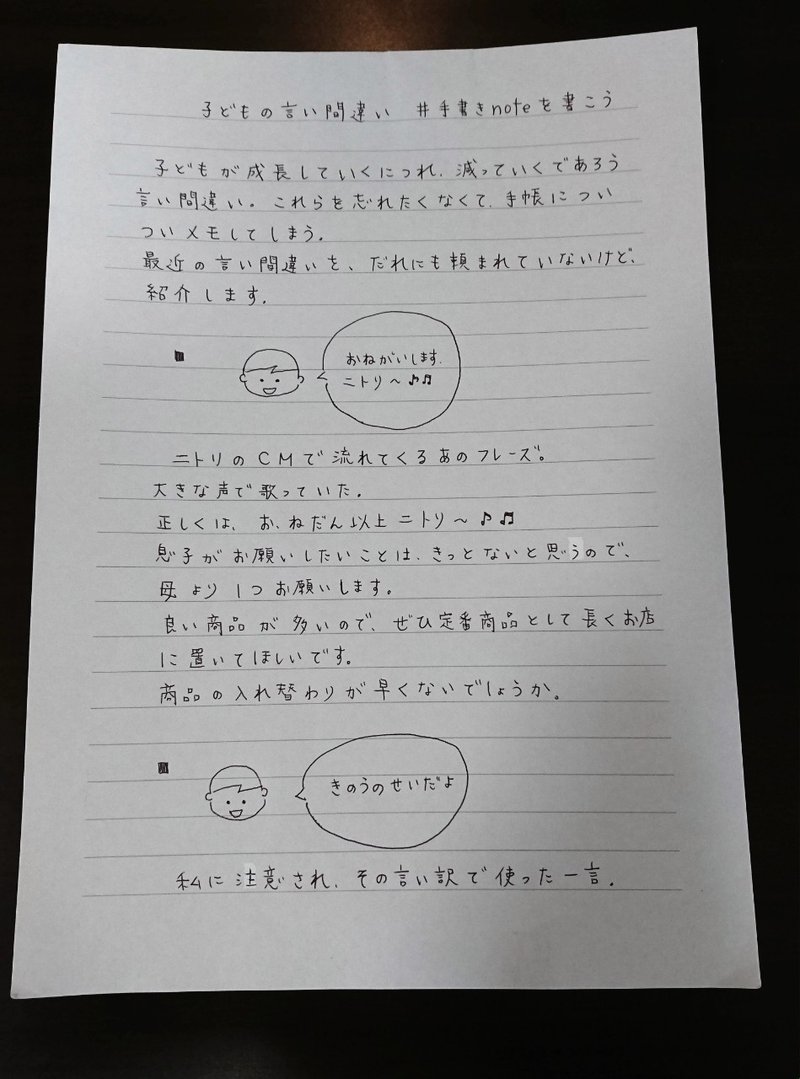 子どもの言い間違い #手書きnoteを書こう
子どもが成長していくにつれ、減っていくであろう
言い間違い。これらを忘れたくなくて、手帳につい
ついメモしてしまう。
最近の言い間違いを、だれにも頼まれていないけど、
紹介します。
おねがいします、
ニトリ〜♪♫
ニトリのCMで流れてくるあのフレーズ。
大きな声で歌っていた。
正しくは、お、ねだん以上ニトリ〜♪♫
息子がお願いしたいことは、きっとないと思うので、
母より1つお願いします。
良い商品が多いので、ぜひ定番商品として長くお店
に置いてほしいです。
商品の入れ替わりが早くないでしょうか。
きのうのせいだよ
私に注意され、その言い訳で使った一言。